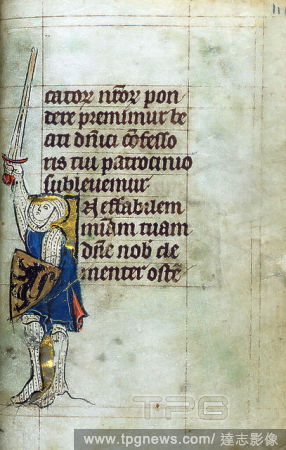 catoꝝ nr̄oꝝ pon
dere premimur be
ati dn̄ici cōfesso
ris tui patrocinio
subleuemur
Ineffabilem
mīam tuam
dn̄e nob cle
menter ostē
TPG
www.tpgnews.com/達志影像